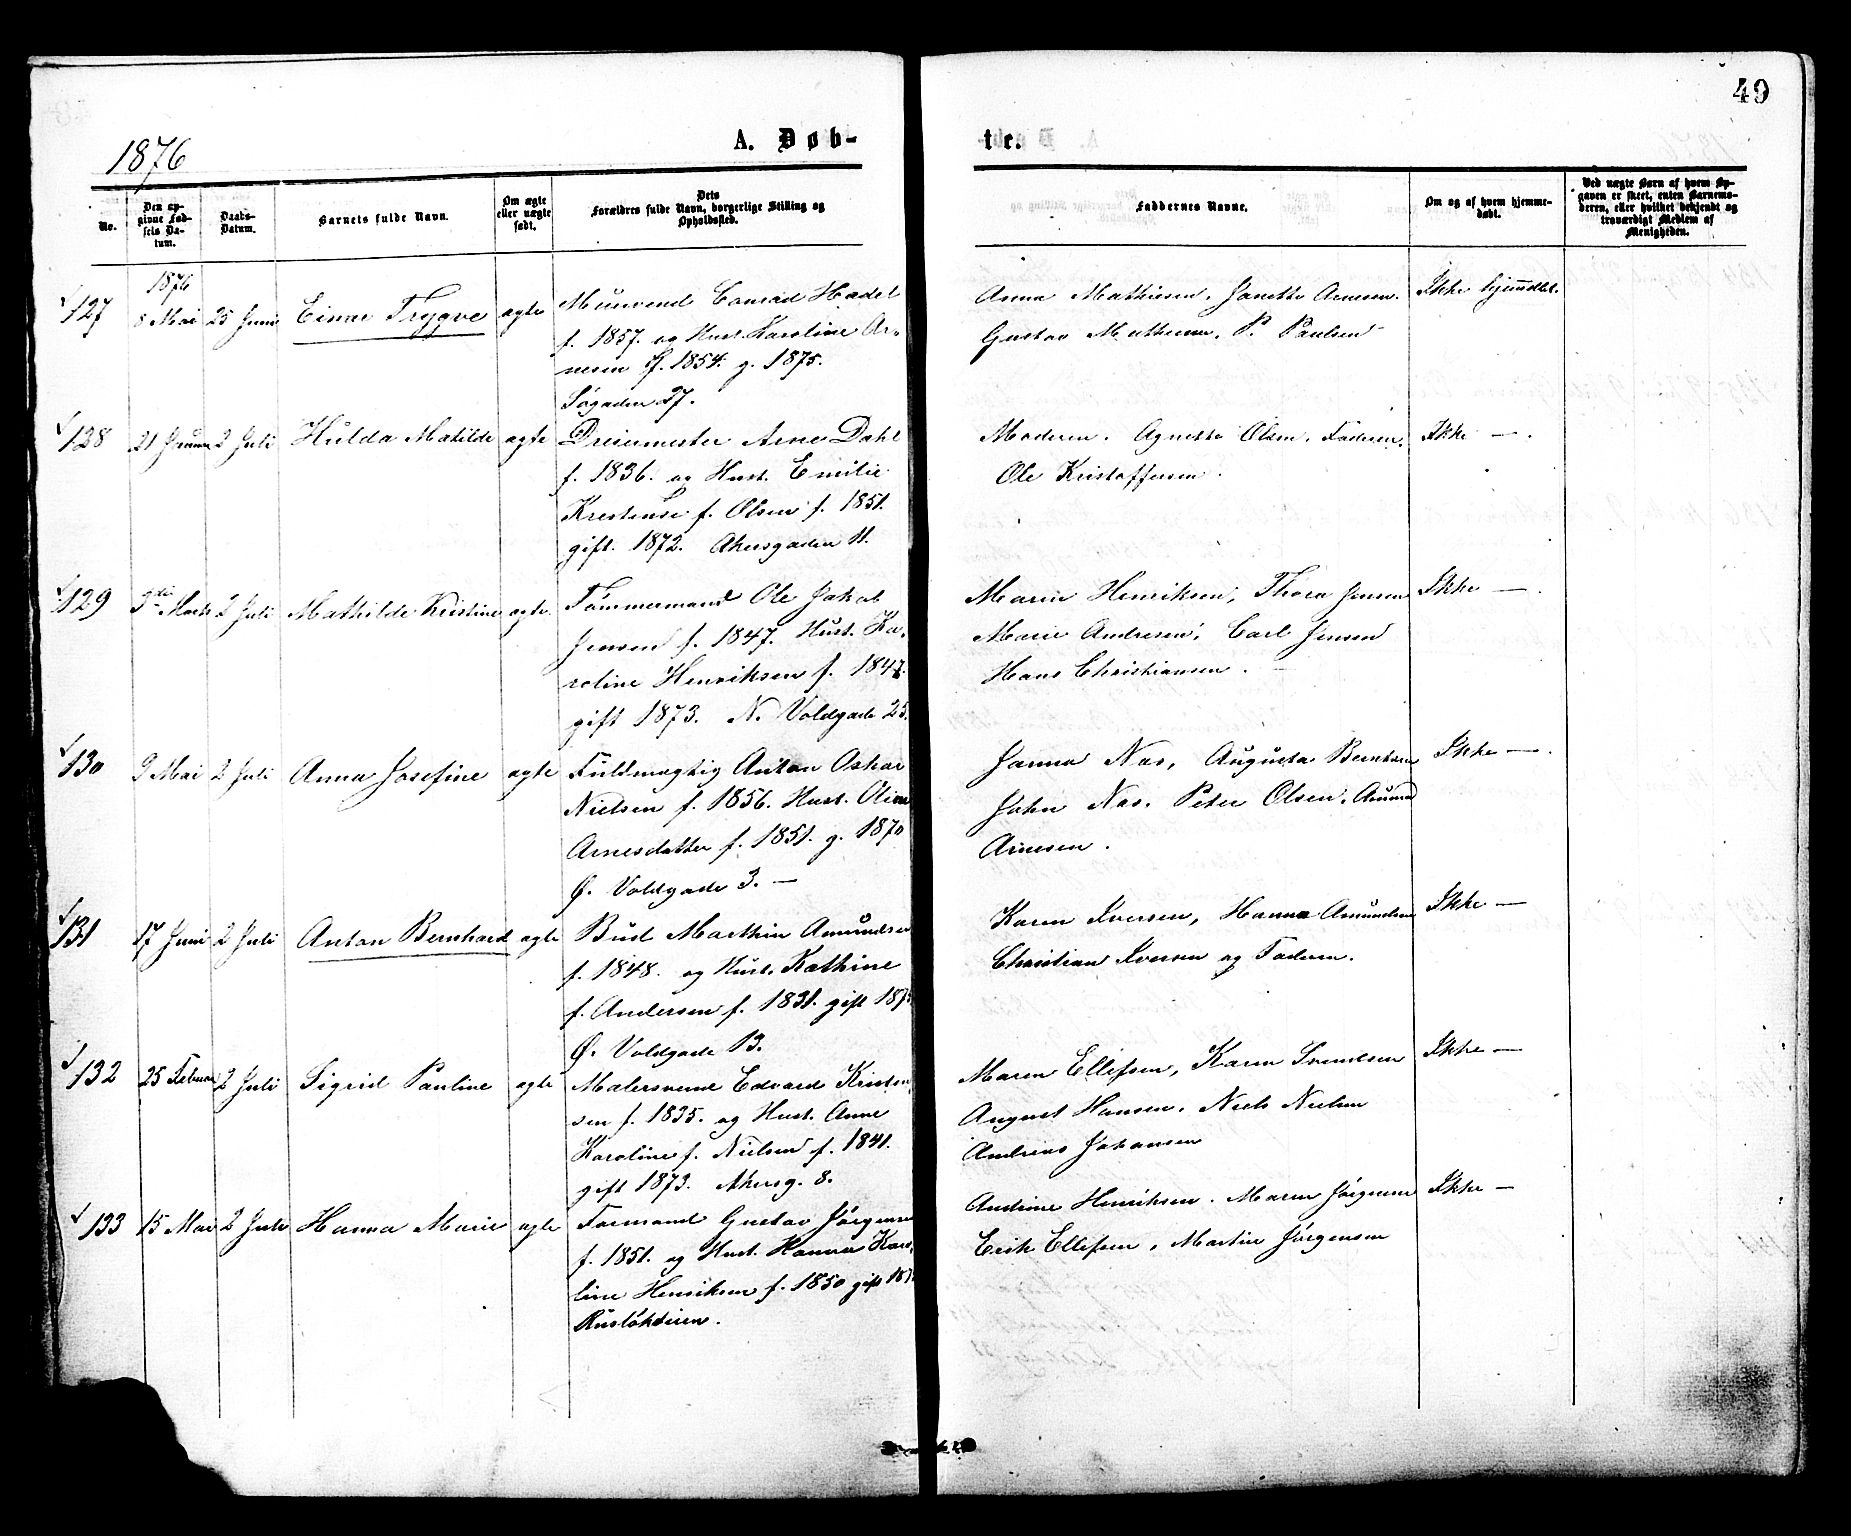 49
1876
A. Døb-
te.
No.
Den op-
givne Fød-
sels Da-
tum.
Daabs-
Datum.
Barnets fulde Navn.
Om ægte
eller uægte
født.
Dets
Forældres fulde Navn, borgerlige Stilling og
Opholdssted.
Faddernes Navne.
Om og af hvem hjemme-
døbt.
Ved uægte Børn af hvem Op-
gaven er skeet, enten Barnemo-
deren, eller hvilket bekjendt og
troværdigt Medlem af
Menigheden.
1876
127 8 Mai 25 Juni Einar Trygve ægte Conrad Hadel
f. 1857. og Hust. Karoline Ar-
nesen f. 1854. g. 1875.
Søgaden 27.
Anna Mathiesen, Janette Arnesen.
Gustav Mathiesen, P. Paulsen
Ikke hjemmdbt.
128 21 2 Juli Hulda Matilde ægte Dreiemester Arne Dahl
f. 1836. og Hust. Emilie
Krestense f. Olsen f. 1851.
gift. 1872. Akersgaden 11.
Moderen. Agnette Olsen. Faderen.
Ole Kristoffersen.
Ikke —.
129 3die Marts 2 Juli Mathilde Kristine ægte. Tømmermand Ole Jakob
Jensen f. 1847. Hust. Ka-
roline Henriksen f. 1847.
gift 1873. N. Voldgade 25.
Marie Henriksen, Thora Jensen
Marie Andresen, Carl Jensen
Hans Christiansen.
Ikke —.
130 9 Mai 2 Juli Anna Josefine ægte Fuldmægtig Anton Oskar
Nielsen f. 1856. Hust. Oline
Arnesdatter f. 1851. g. 1870
Ø. Voldgade 3. —
Janna Nas, Augusta Berntsen
John Nas. Peter Olsen, Amund
Arnesen.
Ikke —.
131 17 Juni 2 Juli Anton Bernhard ægte Bud Marthin Amundsen
f. 1848. og Hust. Kathine
f. Andersen f. 1831. gift 187
Ø. Voldgade 13.
Karen Iversen, Hanna Amundsen
Christian Iversen og Faderen.
Ikke —
132 25 Februar 2 Juli Sigrid Pauline ægte Malersvend Edvard Kristen-
sen f. 1835. og Hust. Anne
Karoline f. Nielsen f. 1841.
gift 1873. Akersg. 8.
Maren Ellefsen, Karen Svendsen
August Hansen. Niels Nielsen
Andreas Johansen
Ikke —
133 15 Mai 2 Juli Hanna Marie ægte Formand Gustav Jørgensen
f. 1851. og Hust. Hanna Karo-
line Henriksen f. 1850 gift 187
Rusløkveien.
Andrine Henriksen. Maren Jørgensen
Erik Ellefsen, Martin Jørgensen
Ikke —